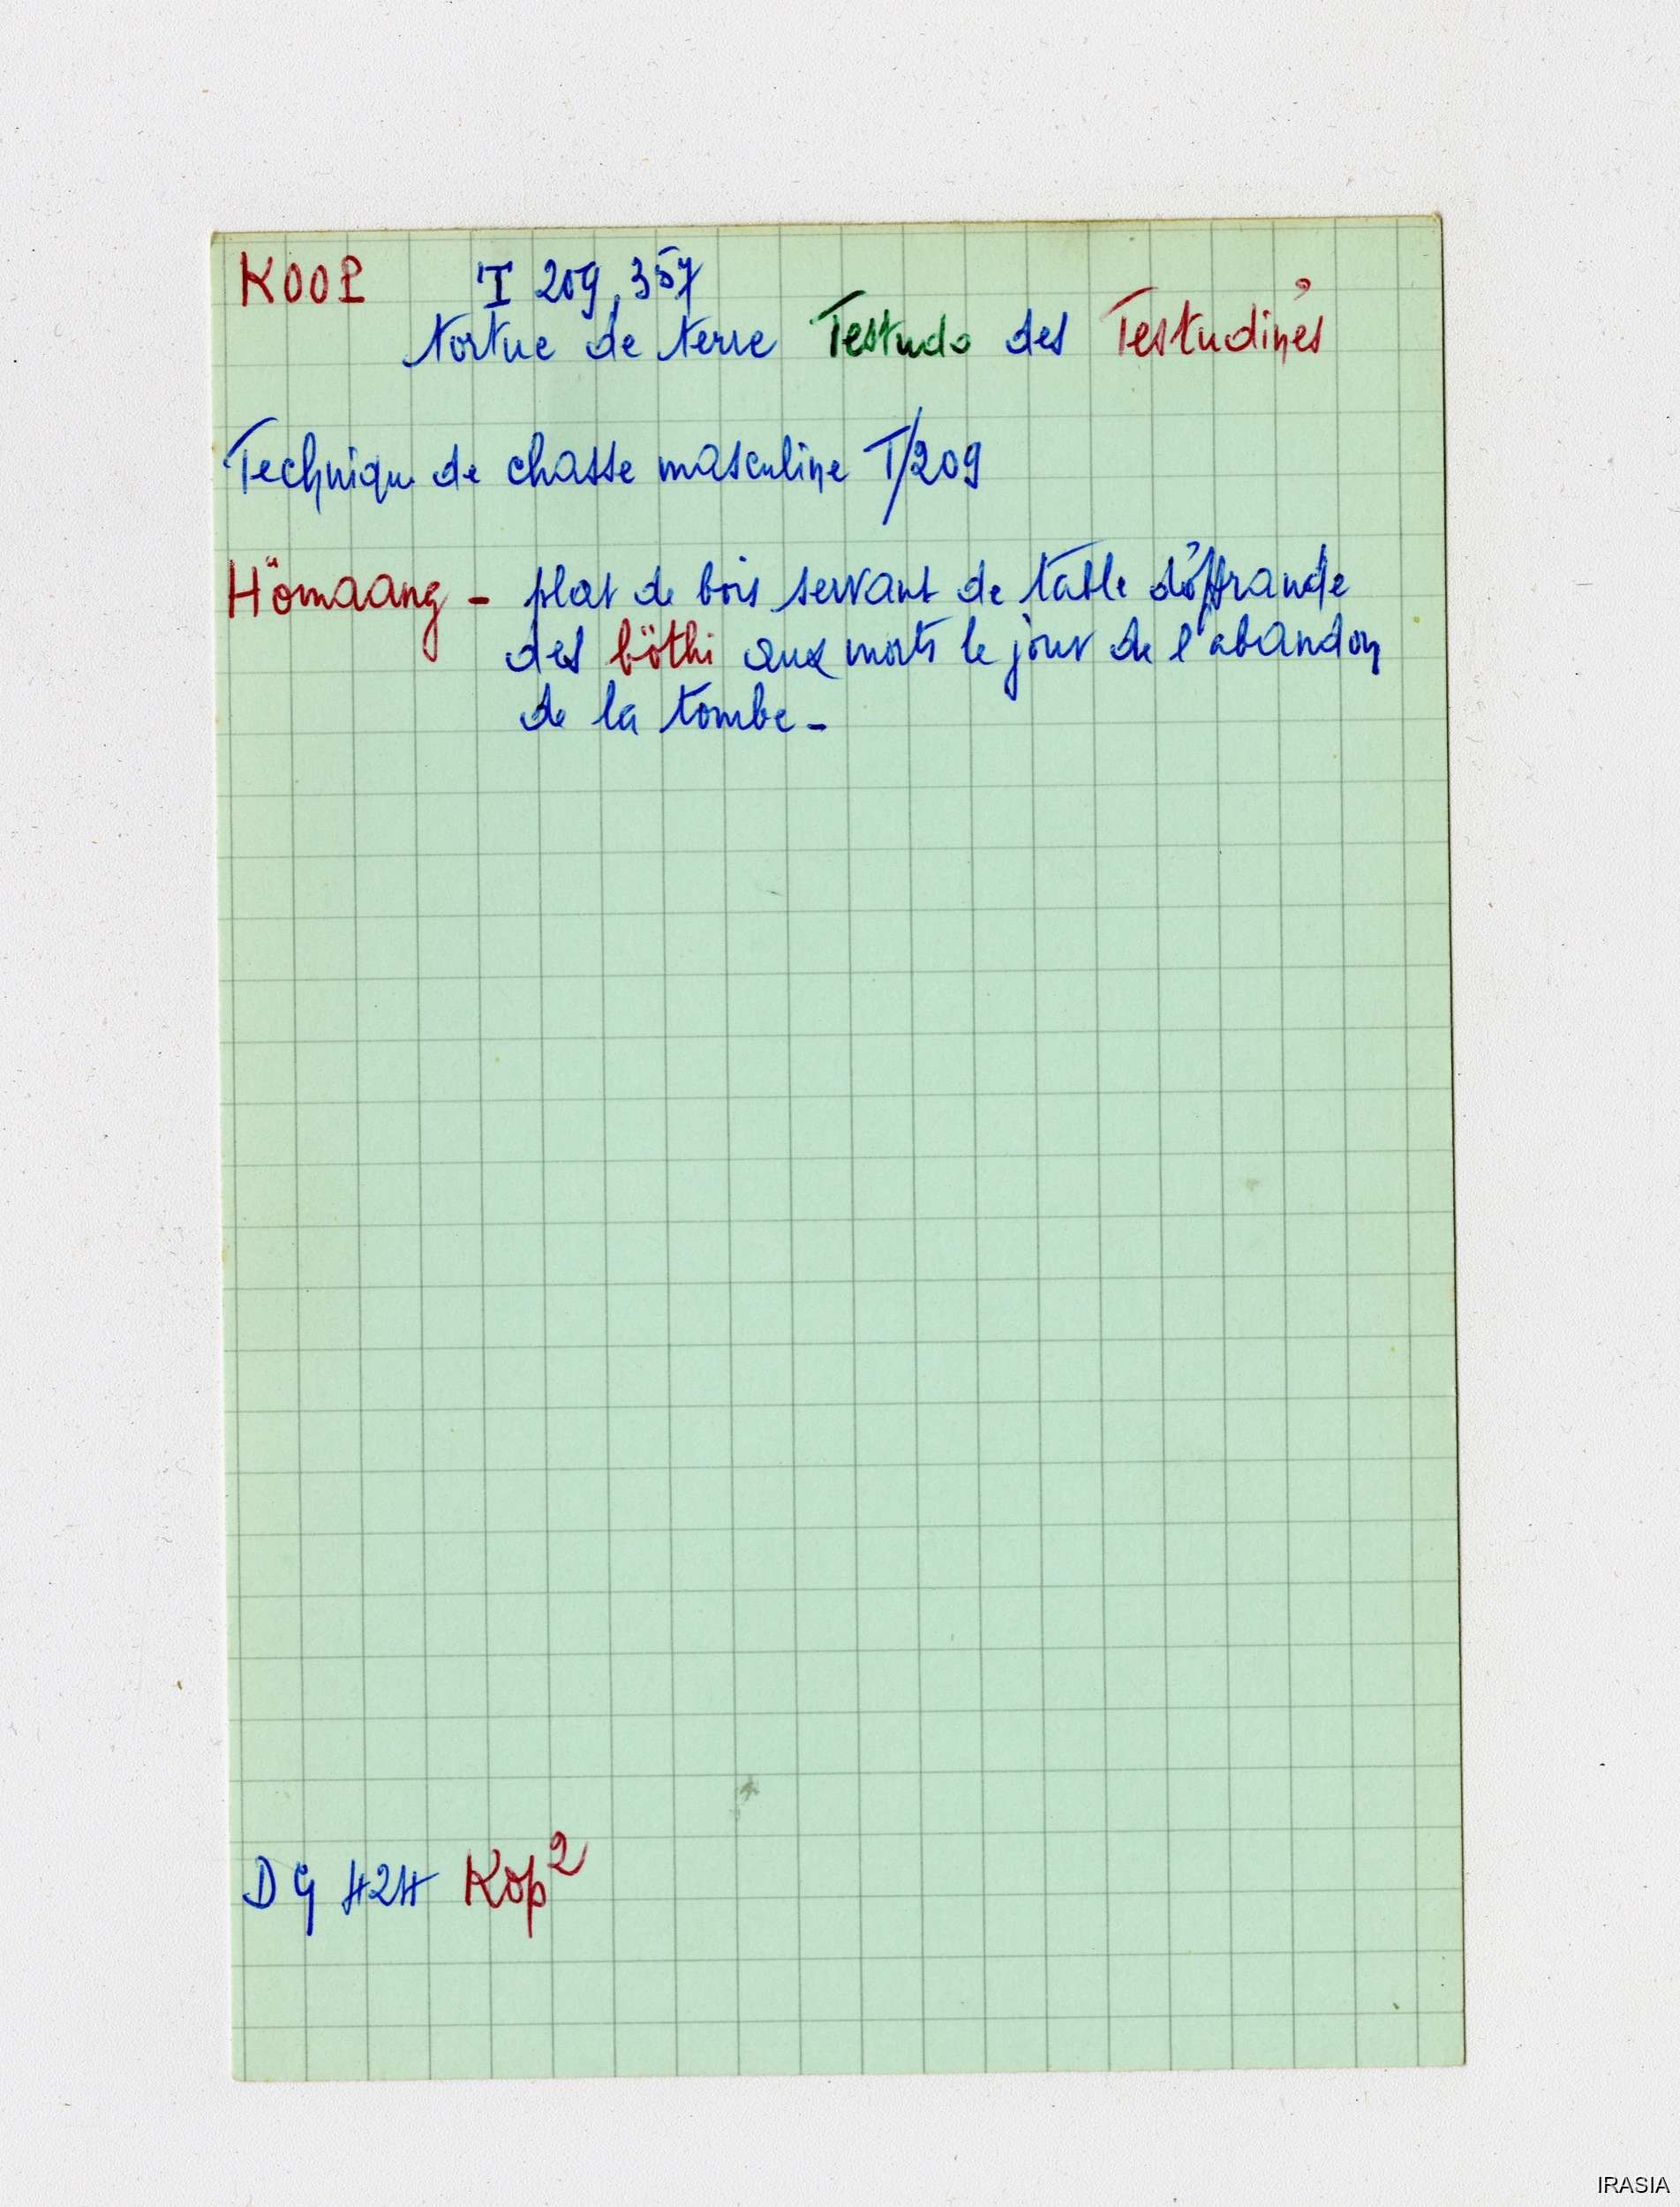 KOOP T 209, 357
tortue de terre Testudo des Testudinés
Technique de chasse masculine T/209
Hömaang - plat de bois servant de table d'offrande
des böthi aux morts le jour de l'abandon
de la tombe -
DG 424 Kop²
IRASIA